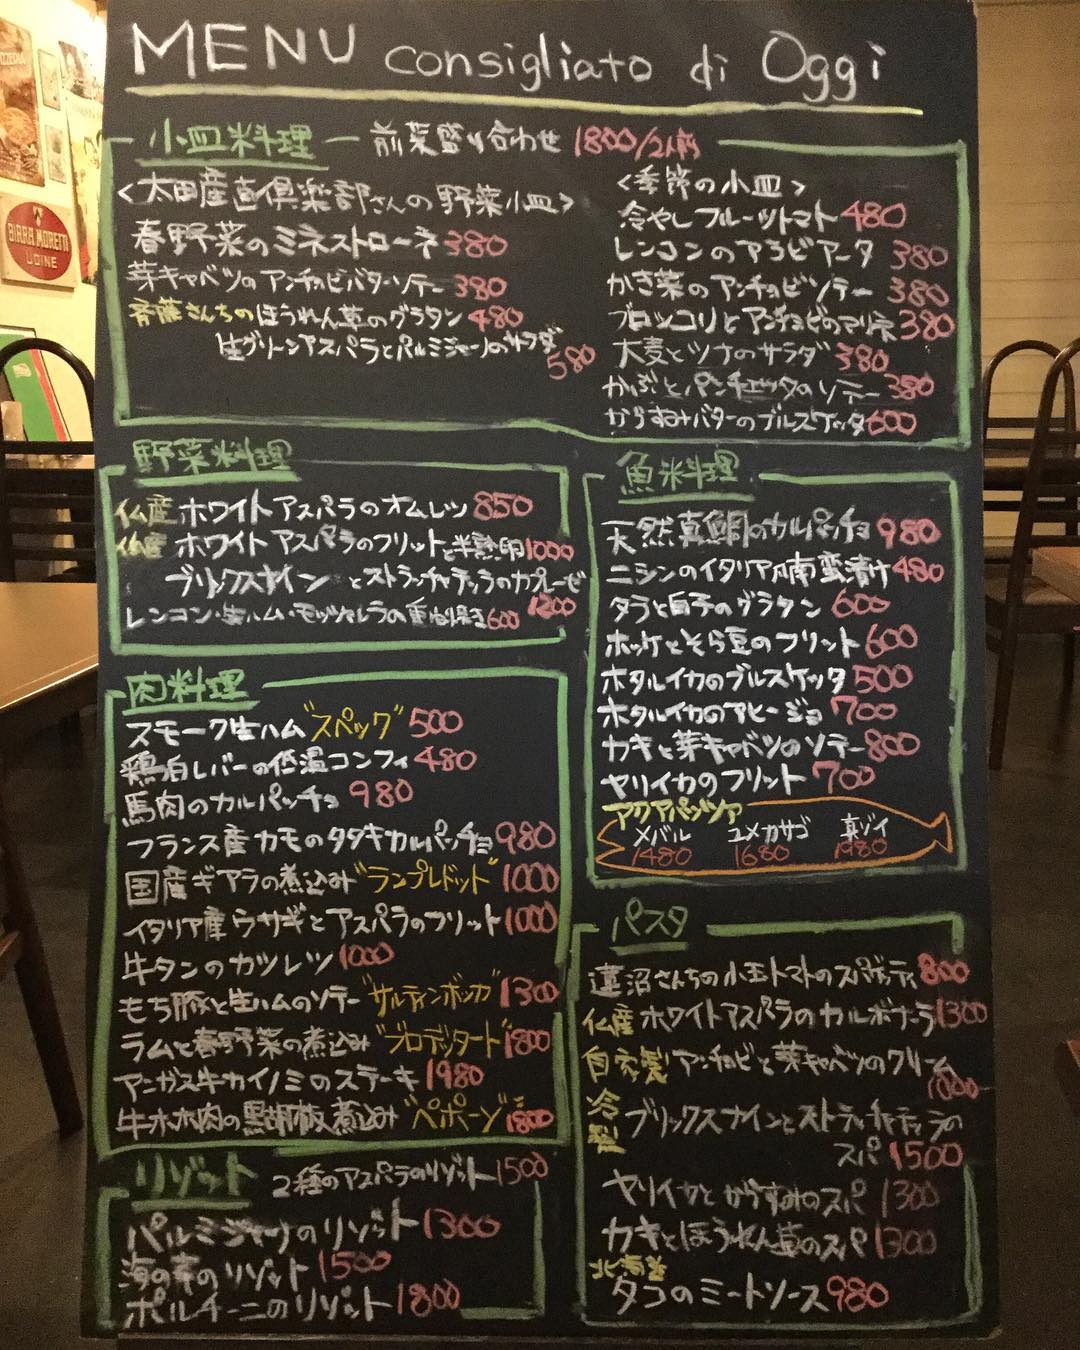 MENU consigliato di Oggi
小皿料理 前菜盛り合わせ 1800/2人前
<太田産直倶楽部さんの野菜小皿>
春野菜のミネストローネ 380
芽キャベツのアンチョビバターソテー 380
斉藤さんちのほうれん草のグラタン 480
生グリーンアスパラとパルミジャーノのサラダ
580
<季節の小皿>
冷やしフルーツトマト 480
レンコンのアラビアータ 380
かき菜のアンチョビソテー 380
ブロッコリとアンチョビのマリネ 380
大麦とツナのサラダ 380
かぶとパンチェッタのソテー 380
からすみバターのブルスケッタ 600
野菜料理
仏産 ホワイトアスパラのオムレツ 850
仏産 ホワイトアスパラのフリットと半熟卵 1000
ブリックスナインとストラッチャテッラのカプレーゼ
1200
レンコン・生ハム・モッツァレラの重ね焼き 600
魚料理
天然真鯛のカルパッチョ 980
ニシンのイタリア風南蛮漬け 480
タラと白子のグラタン 600
ホッケとそら豆のフリット 600
ホタルイカのブルスケッタ 500
ホタルイカのアヒージョ 700
カキと芽キャベツのソテー 800
ヤリイカのフリット 700
アクアパッツァ
メバル ユメカサゴ 真ゾイ
1480 1680 1980
肉料理
スモーク生ハム "スペック" 500
鶏白レバーの低温コンフィ 480
馬肉のカルパッチョ 980
フランス産カモのタタキカルパッチョ 980
国産ギアラの煮込み "ランプレドット" 1000
イタリア産ウサギとアスパラのフリット 1000
牛タンのカツレツ 1000
もち豚と生ハムのソテー "サルティンボッカ" 1300
ラムと春野菜の煮込み "ブロデッタート" 1800
アンガス牛カイノミのステーキ 1980
牛ホホ肉の黒胡椒煮込み "ペポーゾ" 1800
パスタ
蓮沼さんちの小玉トマトのスパゲッティ 800
仏産 ホワイトアスパラのカルボナーラ 1300
自家製 アンチョビと芽キャベツのクリーム
1000
冷製 ブリックスナインとストラッチャテッラの
スパ 1500
ヤリイカとからすみのスパ 1300
カキとほうれん草のスパ 1300
北海道
タコのミートソース 980
リゾット 2種のアスパラのリゾット 1500
パルミジャーノのリゾット 1300
海の幸のリゾット 1500
ポルチーニのリゾット 1800
BIRRA MORETTI
UDINE